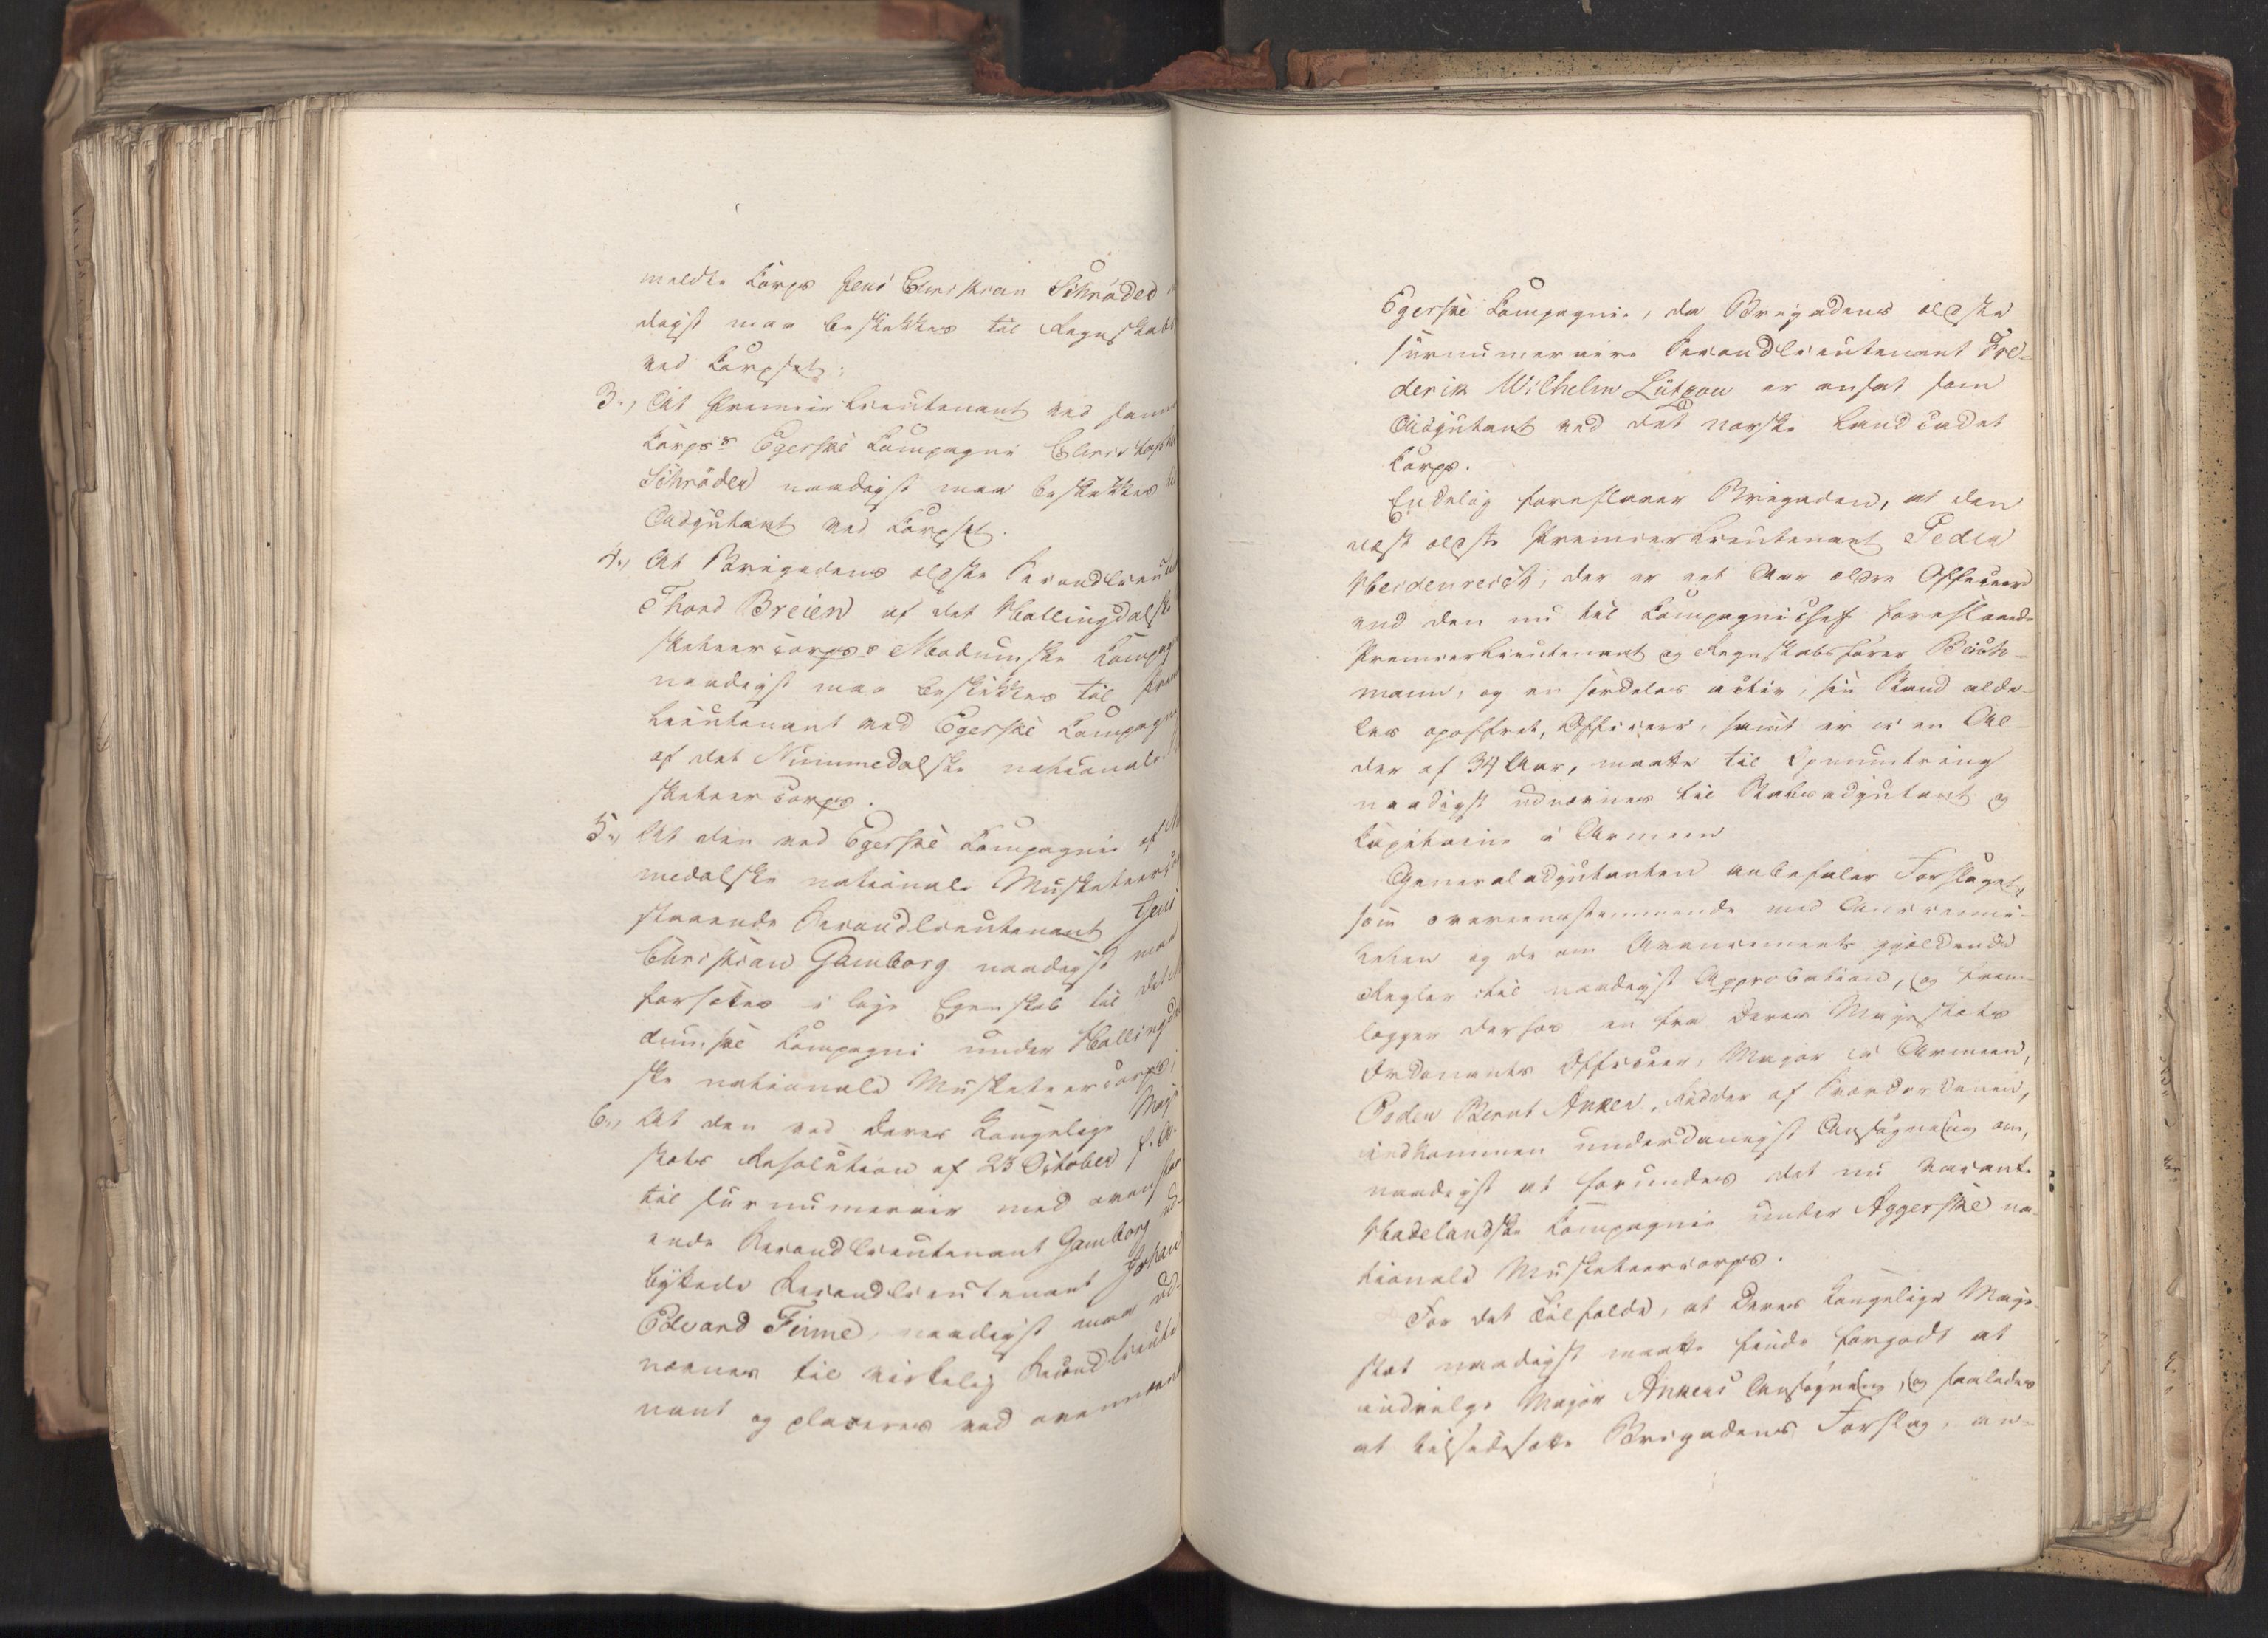 meldte Corps Jens Christian Schrøder
digst maa beskikkes til Regnskabs
ved Corpset;
3., At Premierlieutenant ved samme
Corps's Egerske Compagnie Christopher
Schrøder naadigst maa beskikkes til
Adjutant ved Corpset.
4., At Brigadens ældste Secondlieut
Thord Breien af det Hallingdalske
sketeercorps's Modumske Compag
naadigst maa beskikkes til Prem
lieutenant ved Egerske Compagnie
af det Nummedalske nationale
sketeercorps.
5., At den ved Egerske Compagnie af
medalske nationale Musketeerco
staaende Secondlieutenant Jens
Christian Gamborg naadigst maa
forsættes i lige Egenskab til det
dumske Compagni under Hallingdal
ske nationale Musketeercorps;
6., At den ved Deres Kongelige Maje
stæts Resolution af 23 October f. A.
til surnumerair med ovenstaa
ende Secondlieutenant Gamborg ud
byttede Secondlieutenant Johan
Edvard Finne, naadigst maa ud-
nævnes til virkelig Secondlieute
nant og placeres ved ovennævnt
Egerske Compagnie, da Brigadens ældste
surnumeraire Secondlieutenant Fre-
derik Wilhelm Lützow er ansat som
Adjutant ved det norske Landcadet
Corps.
Endelig foreslaaer Brigaden, at den
næst ældste Premierlieutenant Peder
Heidenreich, der er eet Aar ældre Officeer
end den nu til Compagniechef foreslaaede
Premierlieutenant og Regnskabsfører Beich-
mann, og en særdeles activ, sin Stand alde-
les opoffret, Officeer, samt er i en Al-
der af 34 Aar, maatte til Opmuntring
naadigst udnævnes til Stabsadjutant og
Capitaine i Armeen
Generaladjutanten anbefaler Forslaget,
som overeensstemmende med Ancienni-
teten og de om Avancements gjældende
Regler til naadigst Approbation, og frem-
lægger derhos en fra Deres Majestæts
Ordonants Officeer, Major i Armeen,
Peder Bernt Anker, Ridder af Sværdordenen,
indkommen underdanigst Ansøgning om,
naadigst at forundes det nu vacante
Hadelandske Compagnie under Aggerske na-
tionale Musketeercorps.
For det Tilfælde, at Deres Kongelige Maje-
stæt naadigst maatte finde forgodt at
indvilge Major Ankers Ansøgning, og saaledes
at tilsidesætte Brigadens Forslag, an-